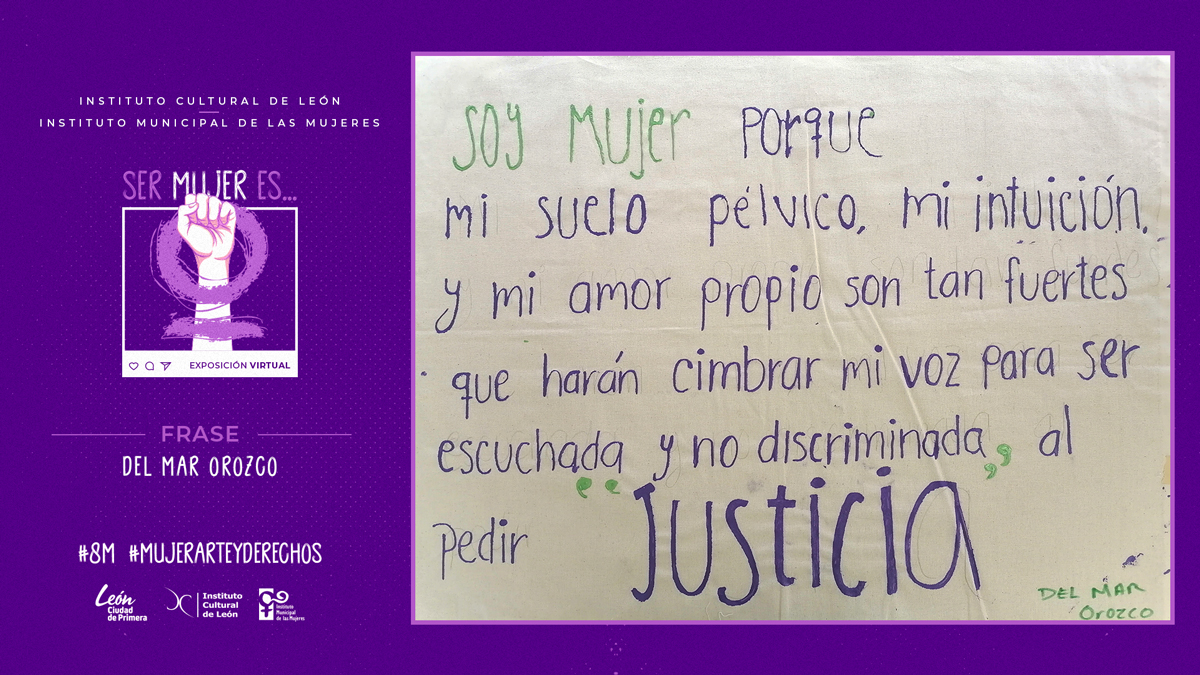 INSTITUTO CULTURAL DE LEÓN
INSTITUTO MUNICIPAL DE LAS MUJERES
SER MUJER ES...
EXPOSICIÓN VIRTUAL
FRASE
DEL MAR OROZCO
#8M #MUJERARTEYDERECHOS
León
Ciudad
de Primera
Instituto
Cultural
de León
Instituto
Municipal
de las Mujeres
Soy Mujer porque
mi suelo pélvico, mi intuición,
y mi amor propio son tan fuertes
que harán cimbrar mi voz para ser
escuchada y no discriminada, al
pedir "Justicia"
DEL MAR
Orozco